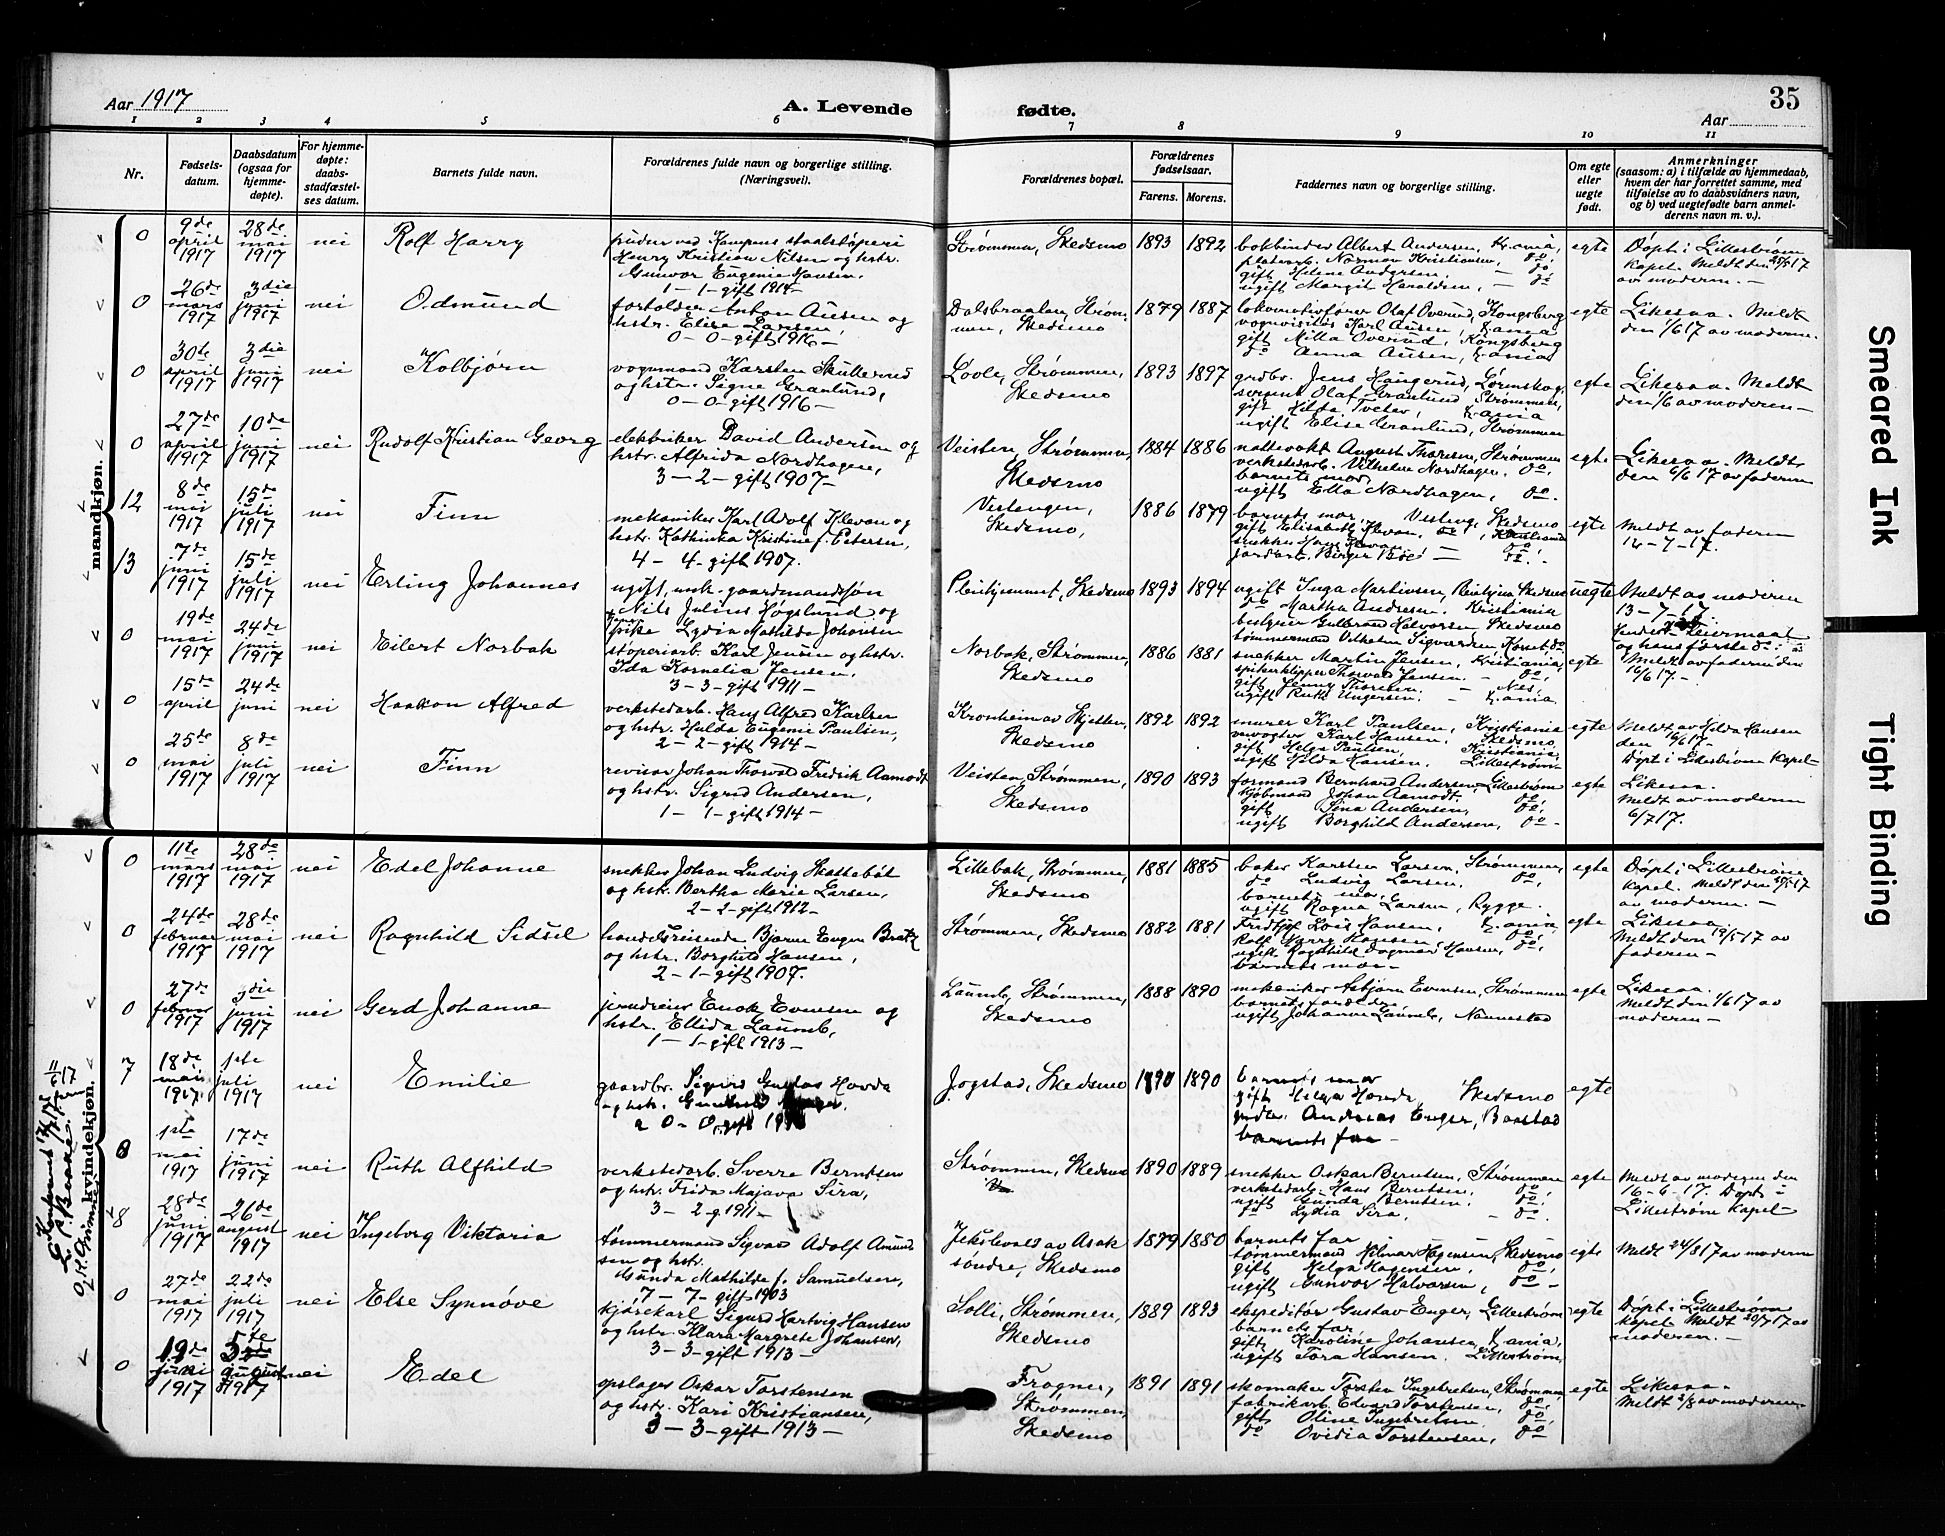 Aar 1917
A. Levende
fødte.
35
Aar
1 2 3 4 5 6 7 8 9 10 11
Nr.
Fødsels-
datum.
Daabsdatum
(ogsaa for
hjemme-
døpte).
For hjemme-
døpte:
daabs-
stadfæstel-
ses datum.
Barnets fulde navn.
Forældrenes fulde navn og borgerlige stilling.
(Næringsvei).
Forældrenes bopæl.
Forældrenes
fødselsaar.
Farens. Morens.
Faddernes navn og borgerlige stilling.
Om egte
eller
uegte
født.
Anmerkninger
(saasom: a) i tilfælde av hjemmedaab,
hvem der har forrettet samme, med
tilføielse av to daabsvidners navn,
og b) ved uegtefødte barn anmel-
derens navn m. v.).
mandkjøn.
0
9de
april
1917
28de
mai
1917
nei
Rolf Harry
pudser ved Kampens staalstøperi
Henry Kristian Nilsen og hstr.
Gunvor Eugenie Hansen.
1 - 1 - gift 1914 -
Strømmen, Skedsmo
1893 1892
bokbinder Albert Andersen, Kr.ania,
platearb. Norman Kristiansen, do,
gift Helene Andersen, - do
ugift Margit Haraldsen, - do
egte
Døpt i Lillestrøm
kapel. Meldt den 25/5 17
av moderen. -
0
26de
mars
1917
3die
juni
1917
nei
Odmund
forholder Anton Ausen og
hstr. Elise Larsen,
0 - 0 - gift 1916 -
Dalsbraaten, Strøm-
men, Skedsmo
1879 1887
lokomotivfører Olaf Overud, Kongsberg
vognvisitør Karl Ausen, Kr.ania
gift Milla Overud, Kongsberg
do Anna Ausen, Kr.ania
egte
Likesaa. Meldt
den 1/6 17 av moderen.
0
30te
april
1917
3die
juni
1917
nei
Kolbjørn
vognmand Karsten Skullerud
og hstr. Signe Granlund,
0 - 0 - gift 1916 -
Lovle, Strømmen,
Skedsmo
1893 1897
grdbr. Jens Haugerud, Lørenskog,
sergent Olaf Granlund, Strømmen,
gift Hilda Tveter, Kr.ania
ugift Elise Granlund, Strømmen
egte
Likesaa. Meldt
den 1/6 av moderen -
0
27de
april
1917
10de
juni
1917
nei
Rudolf Kristian Georg
elektriker David Andersen og
hstr. Alfrida Nordhagen,
3 - 2 - gift 1907 -
Veisten, Strømmen,
Skedsmo
1884 1886
nattevakt August Thoresen, Strømmen
verkstedarb. Vilhelm Nordhagen, do,
barnets mor
ugift Ella Nordhagen, do.
egte
Likesaa. Meldt
den 6/6 17 av faderen
12
8de
mai
1917
15de
juli
1917
nei
Finn
mekaniker Karl Adolf Klevan og
hstr. Kathinka Kristine f. Petersen,
4 - 4 - gift 1907.
Vestengen,
Skedsmo,
1886 1879
barnets mor, Vesteng, Skedsmo
gift Elisabeth Klevan, do
snekker Hans Klevan do
jordarb. Birger Bøe - do.
egte
Meldt av faderen
14-7-17.
13
7de
juni
1917
15de
juli
1917
nei
Erling Johannes
ugift, unk. gaardmandssøn
Nils Julius Høgslund og
pike Lydia Mathilde Johansen
Pleiehjemmet, Skedsmo
1893 1894
ugift Inga Martinsen, Pleiehjem Skedsmo
do Martha Andresen. Kristiania
bestyrer Gulbrand Halvorsen Skedsmo
tømmermand Vilhelm Sigvardsen
uegte
Meldt av moderen
13-7-17.
Hendes leiermaal
og hans første do.
0
19de
mai
1917
24de
juni
1917
nei
Eilert Norbak
støperiarb. Karl Jensen og hstr.
Ida Kornelia Jensen,
3 - 3 - gift 1911 -
Norbak, Strømmen,
Skedsmo
1886 1881
snekker Martin Jensen, Kristiania,
spikerklipper Thorvald Jensen. - do,
gift Jenny Thoresen. - Nes,
ugift Ruth Ungersen. - Kr.ania
egte
Meldt av faderen den
16/6 17. -
0
15de
april
24de
juni
nei
Haakon Alfred
verkstedarb. Hans Alfred Karlsen
og hstr. Hulda Eugenie Paulsen,
2 - 2 - gift 1914 -
Kronheim av Skjetten,
Skedsmo
1892 1892
murer Karl Paulsen, Kristiania
Karl Hansen. Skedsmo,
gift Helga Paulsen, Kristiania,
ugift Hilda Hansen. Lillestrøm
egte
Meldt av Hilda Hansen
den 16/6 17 -
Døpt i Lillestrøm Kapel -
0
25de
mai
1917
8de
juli
1917
nei
Finn
revisor Johan Thorvald Fredrik Aamodt
og hstr. Sigrid Andersen,
1 - 1 - gift 1914 -
Veisten, Strømmen,
Skedsmo
1890 1893
formand Bernhard Andersen, Lillestrøm
kjøbmand Johan Aamodt. do,
gift Sina Andersen, do,
ugift Borghild Andersen, do -
egte
Likesaa.
Meldt av moderen
6/7 17.
kvindekjøn.
0
11te
mars
1917
28de
mai
1917
nei
Edel Johanne
snekker Johan Ludvig Skattebøl
og hstr. Bertha Marie Larsen,
2 - 2 - gift 1912 -
Lillebak, Strømmen,
Skedsmo
1881 1885
baker Karsten Larsen, Strømmen,
do Ludvig Larsen. do,
barnets mor,
ugift Ragna Larsen, Rygge.
egte
Døpt i Lillestrøm
kapel. Meldt den 20/5 17
av moderen. -
0
24de
februar
1917
28de
mai
1917
nei
Ragnhild Sidsel
handelsreisende Bjarne Eugen Bratz
og hstr. Borghild Hansen,
2 - 1 - gift 1907.
Strømmen, Skedsmo
1882 1881
Fridtjof Lois Hansen, Kr.ania,
Rolf Harry Hansen do,
ugift Ragnhild Dagmar Hansen, do,
barnets mor -
egte
Likesaa.
Meldt den 19/5 17 av
faderen -
0
27de
februar
1917
3die
juni
1917
nei
Gerd Johanne
jerndreier Enok Evensen og
hstr. Ellida Laumb,
1 - 1 - gift 1913 -
Laumb, Strømmen,
Skedsmo
1888 1890
mekaniker Asbjørn Evensen, Strømmen
barnets forældre,
ugift Johanne Laumb, Nannestad
egte
Likesaa.
Meldt den 1/6 17 av
moderen -
7
18de
mai
1917.
1ste
juli
1917
nei
Emilie
gaardbr. Sigurd Gustav Hovde
og hstr.
0 - 0, gift
Jogstad, Skedsmo
1890 1890
barnets mor
gift Helga Hovde, Skedsmo
grdbr. Andreas Enger, Baastad
barnets far -
egte
0
1ste
mai
1917
17de
juni
1917
nei
Ruth Alfhild
verkstedarb. Sverre Berntsen
og hstr. Frida Majava Sira,
3 - 2 g. 1911 -
Strømmen, Skedsmo
1890 1889
snekker Oskar Berntsen, Strømmen
verkstedarb. Hans Berntsen, do,
ugift Gunda Berntsen do,
do Lydia Sira, - do.
egte
Meldt av moderen den
16-6-17. Døpt i
Lillestrøm Kapel -
8
28de
juni
1917
26de
august
1917
nei
Ingeborg Viktoria
tømmermand Sigvald Adolf Amund-
sen og hstr.
Gunda Mathilde f. Samuelsen,
7 - 7 - gift 1903
Jekslevold av Asak
søndre, Skedsmo
1879 1880
barnets far
tømmermand Hilmar Hagensen, Skedsmo
gift Helga Hagensen, do,
ugift Gunvor Halvorsen, do -
egte
Meldt 24/8 17 av moderen
0
27de
mai
1917
22de
juli
1917
nei
Else Synnøve
kjørekarl Sigurd Hartvig Hansen
og hstr. Klara Margrete Johansen,
3 - 3 - gift 1913 -
Solli, Strømmen,
Skedsmo
1889 1893
ekspeditør Gustav Enger, Lillestrøm
barnets far,
gift Karoline Johansen, Kr.ania,
ugift Tora Hansen. Lillestrøm,
egte
Døpt i Lillestrøm
kapel Meldt 20/7 17 av
moderen. -
0
19de
juni
1917
5te
august
1917
nei
Edel
opslager Oskar Torstensen
og hstr. Kari Kristiansen,
3 - 3 - gift 1913 -
Frogner,
Strømmen,
Skedsmo
1891 1891
skomaker Torsten Ingebretsen, Strømmen,
fabrikarb. Edvard Torstensen, do,
gift Oline Ingebretsen do,
do Ovidia Torstensen, do
egte
Likesaa.
Meldt 3/8 av moderen.
Smeared Ink
Tight Binding